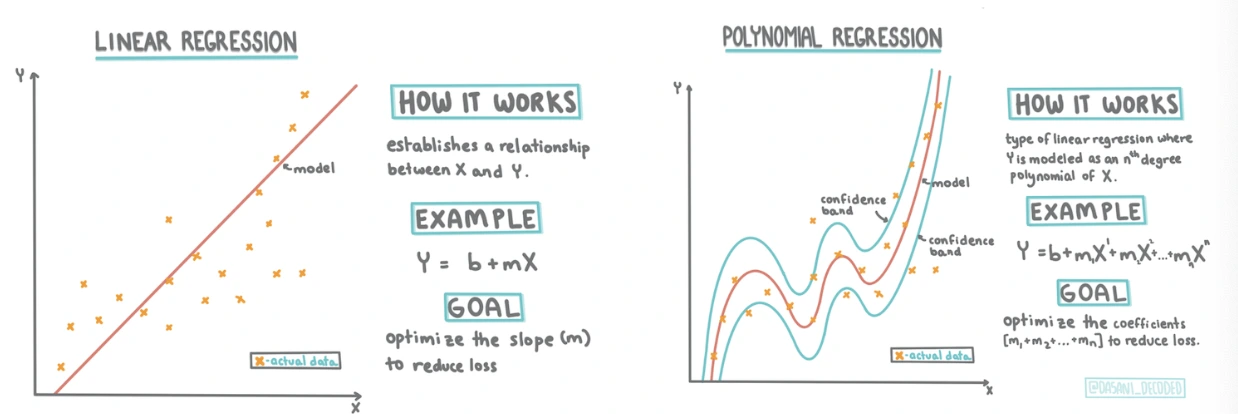 LINEAR REGRESSION
Y
model
X-actual data
X
HOW IT WORKS
establishes a relationship
between X and Y.
EXAMPLE
Y = b+mX
GOAL
optimize the slope (m)
to reduce loss
POLYNOMIAL REGRESSION
Y
confidence
band
model
confidence
band
X-actual data
X
HOW IT WORKS
type of linear regression where
Y is modeled as an nᵗʰ degree
polynomial of X.
EXAMPLE
Y = b+m₁X¹+m₂X²+...+mₙXⁿ
GOAL
optimize the coefficients
[m₁+m₂+...+mₙ] to reduce loss.
@DASANI_DECODED